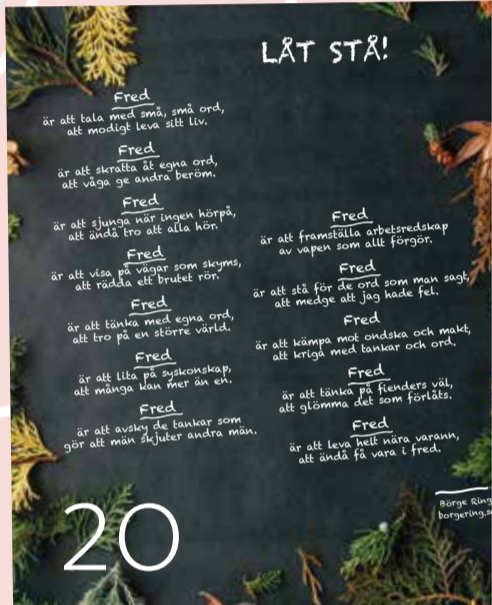 LÅT STÅ!
Fred
är att tala med små, små ord,
att modigt leva sitt liv.
Fred
är att skratta åt egna ord,
att våga ge andra beröm.
Fred
är att sjunga när ingen hör på,
att ändå tro att alla hör.
Fred
är att visa på vägar som skyms,
att rädda ett brutet rör.
Fred
är att tänka med egna ord,
att tro på en större värld.
Fred
är att lita på syskonskap,
att många kan mer än en.
Fred
är att avsky de tankar som
gör att män skjuter andra män.
Fred
är att framställa arbetsredskap
av vapen som allt förgör.
Fred
är att stå för de ord som man sagt,
att medge att jag hade fel.
Fred
är att kämpa mot ondska och makt,
att kriga med tankar och ord.
Fred
är att tänka på fienders väl,
att glömma det som förlåts.
Fred
är att leva helt nära varann,
att ändå få vara i fred.
Börge Ring
borgering.se
20